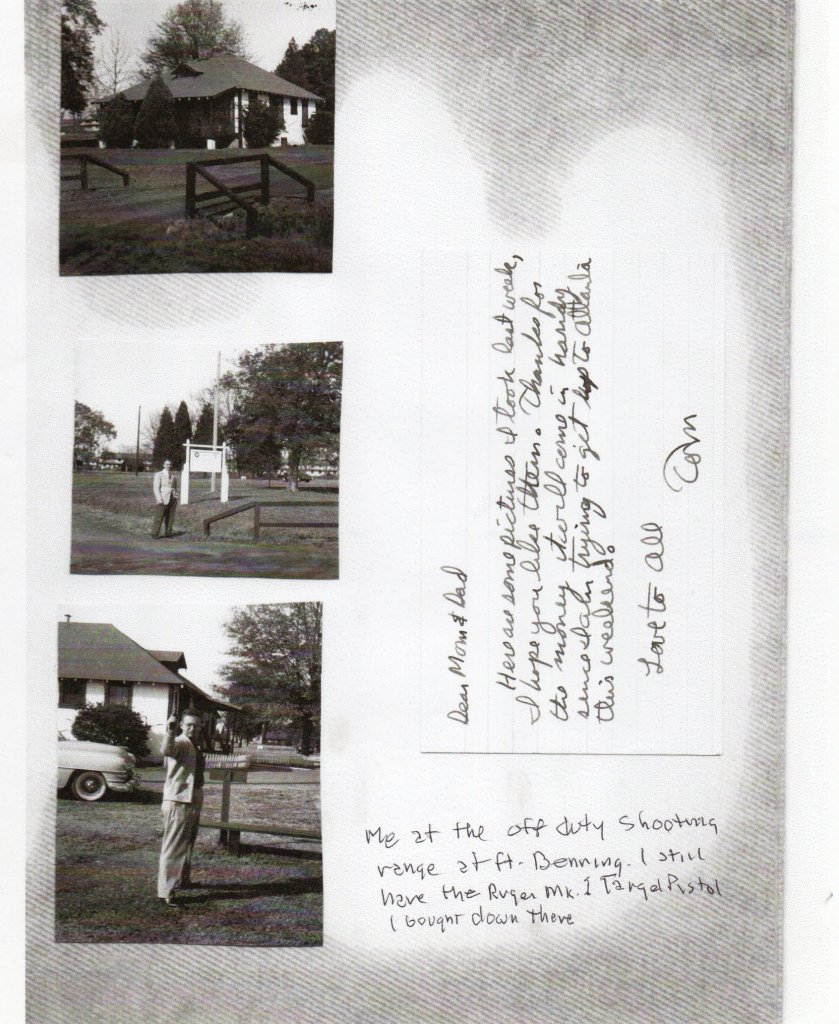 Dear Mom & Dad
Here are some pictures I took last week,
I hope you like them. Thanks for
the money it will come in handy
since I am trying to get up to Atlanta
this weekend.
Love to all
Tom
Me at the off duty shooting
range at ft. Benning. I still
have the Ruger Mk. I Target Pistol
I bought down there